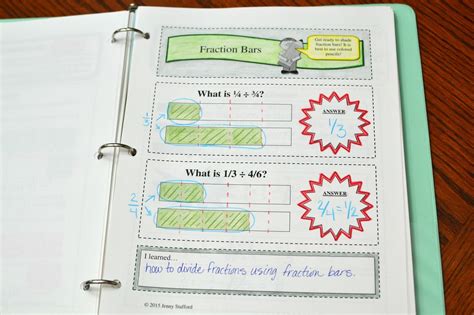 Fraction Bars
Get ready to shade
fraction bars! It is
best to use colored
pencils!
What is ¼ ÷ ¾?
1/3
ANSWER
1/3
What is 1/3 ÷ 4/6?
2/4
ANSWER
2/4=1/2
I learned...
how to divide fractions using fraction bars.
© 2015 Jenny Stafford